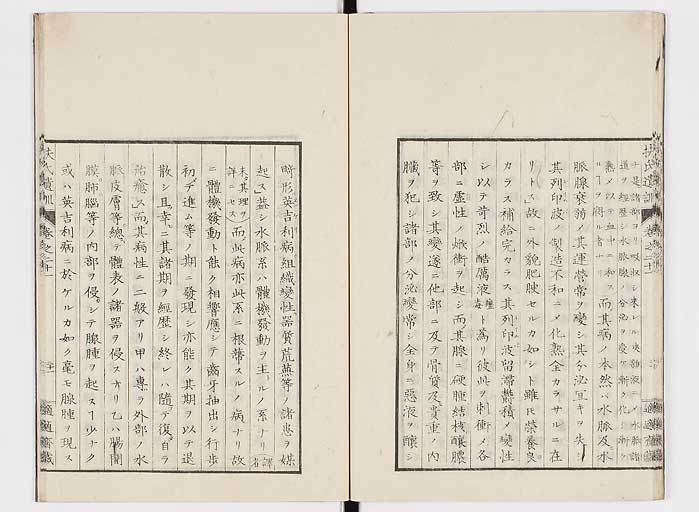 ナ是諸部ヨリ吸收シ來レル
道ヲ經歴シ水脈腺ノ分泌ヲ受ケ漸ク化シ漸ク
熟メ以テ血中ニ和ス
ルヿヲ得ル者ナリ而其病ノ本然ハ水脈及水
脈腺衰弱メ其運營常ヲ變シ其分泌宜キヲ失シ
其列印波ノ製造不和ニメ化熟全カラサルニ在
リトス故ニ外貌肥腴セルカ如シト雖𪜈營養良
カラス補給完カラス其列印波留滯欝積メ變性
シ以テ苛烈ノ酷厲液トナリ彼此ヲ刺衝メ各
部ニ虚性ノ焮衝ヲ起シ而其腺ニ硬腫結核釀膿
等ヲ致シ其變遂ニ他部ニ及ヲ骨質及貴重ノ内
臟ヲ犯シ諸部ノ分泌變常シ全身ニ惡液ヲ釀シ
扶氏遺訓
卷之二十
畸形英吉利病組織變性器質荒蕪等ノ諸患ヲ媒
起ス盖シ水脈系ハ體機發動ヲ主ルノ系ナリ譯者
未其理ヲ
詳ニセス而此病亦此系ニ根蔕スルノ病ナリ故
ニ體機發動ト能ク相響應シテ齒牙抽出シ行歩
初テ進ム等ノ期ニ發現シ亦能ク其期ヲ以テ退
散シ且幸ニ其諸期ヲ經歴シ終レハ隨テ復自ラ
治癒ス而其病性ニ二般アリ甲ハ專ラ外部ノ水
脈皮膚等總テ體表ノ諸器ヲ侵スナリ乙ハ腸間
膜肺腦等ノ内部ヲ侵シテ腺腫ヲ起スヿ少ナク
或ハ英吉利病ニ於ケルカ如ク毫モ腺腫ヲ現ス
扶氏遺訓